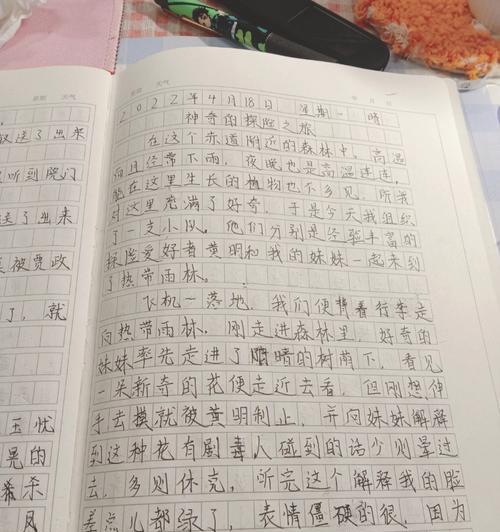 星期 天气
议送了出来
听到院门
送了出来
被贾政
了,就
玉忧
晃的
希杀
风
星期 天气
年 月 日
2022年4月18日 星期一 晴
神奇的探险之旅
在这个赤道附近的森林中,高温
而且经常下雨,夜晚也是高温连连,
能在这里生长的植物也不多见,所以我
对这里充满了好奇,于是今天我组织
了一支小队。他们分别是经验丰富的
探险爱好者黄明和我的妹妹一起来到
了热带雨林。
飞机一落地,我们便背着行李走
向热带雨林。刚走进森林里,好奇的
妹妹率先走进了暗的树荫下,看见
一朵新奇的花便走近去看,但刚想伸
手去摸就被黄明制止,并向妹妹解释
到这种花有剧毒人碰到的话少则晕过
去,多则休克,听完这个解释我的脸
差点儿都绿了,表情僵硬的很,因为